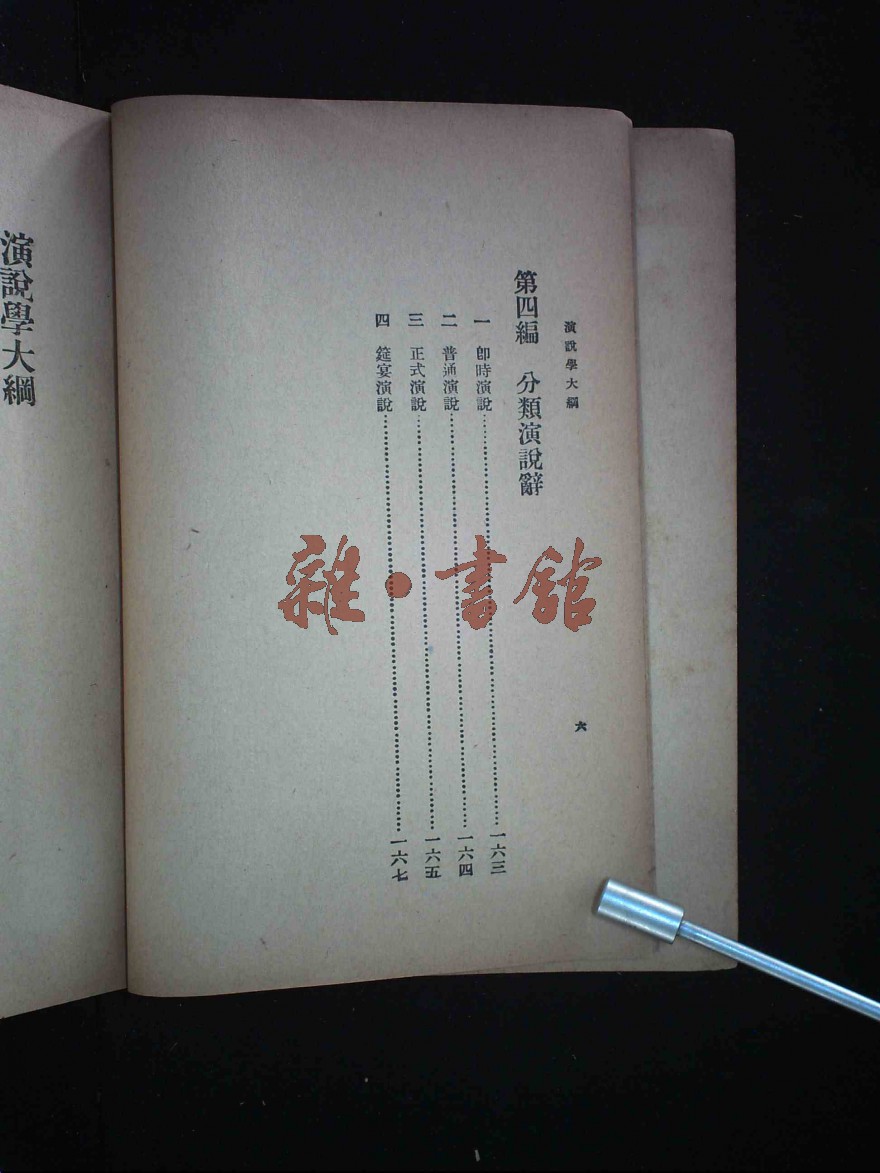 演說學大綱
六
第四編 分類演說辭
一 卽時演說……一六三
二 普通演說……一六四
三 正式演說……一六五
四 筵宴演說……一六七
演說學大綱
雜·書館